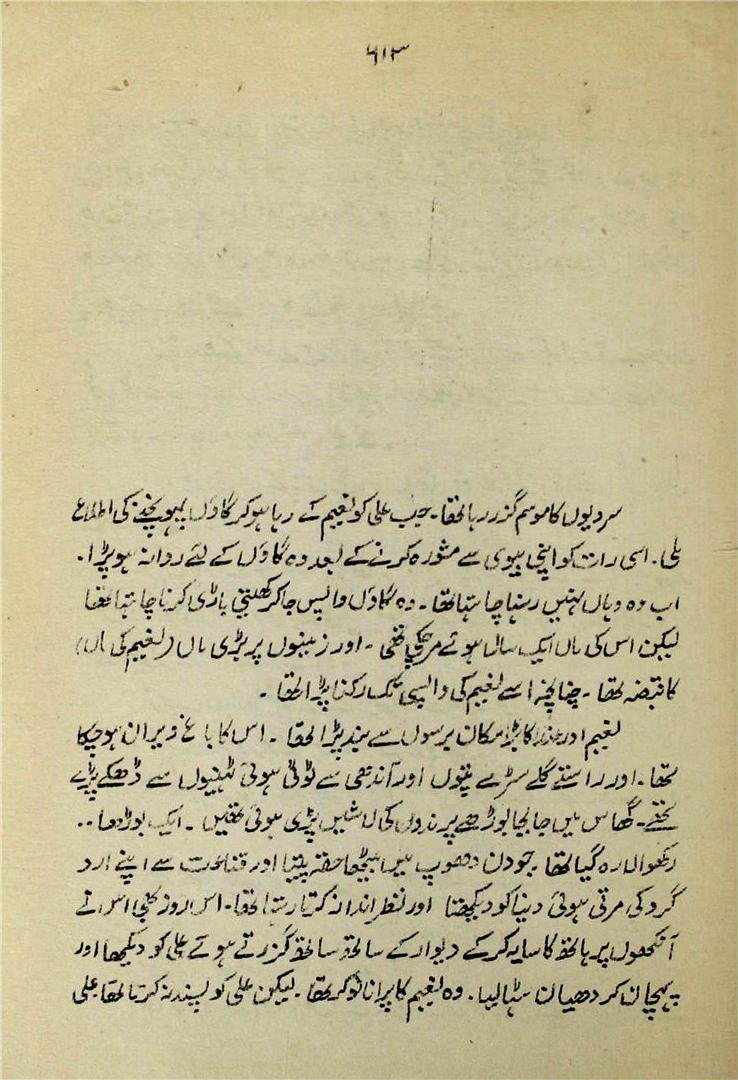 ۶۱۳
سردیوں کا موسم گزر رہا تھا۔ جب علی کو نعیم کے رہا ہو کر گاؤں پہونچنے کی اطلاع
ملی۔ اسی رات کو اپنی بیوی سے مشورہ کرنے کے بعد وہ گاؤں کے لئے روانہ ہو پڑا۔
اب وہ وہاں نہیں رہنا چاہتا تھا۔ وہ گاؤں واپس جا کر کھیتی باڑی کرنا چاہتا تھا
لیکن اس کی ماں ایک سال ہوئے مر چکی تھی۔ اور زمینوں پر بڑی ماں (نعیم کی ماں)
کا قبضہ تھا۔ چنانچہ اسے نعیم کی واپسی تک رکنا پڑا تھا۔
نعیم اور عذرا کا بڑا مکان برسوں سے بند پڑا تھا۔ اس کا باغ ویران ہو چکا
تھا۔ اور راستے گلے سڑے پتوں اور آندھی سے ٹوٹی ہوئی ٹہنیوں سے ڈھکے پڑے
تھے۔ گھاس میں جا بجا بوڑھے پرندوں کی لاشیں پڑی ہوئی تھیں۔ ایک بوڑھا..
رکھوالا رہ گیا تھا۔ جو دن دھوپ میں بیٹھا حقہ پیتا اور قناعت سے اپنے ارد
گرد کی مرتی ہوئی دنیا کو دیکھتا اور نظر انداز کرتا رہتا تھا۔ اس روز بھی اس نے
آنکھوں پر ہاتھ کا سایہ کر کے دیوار کے ساتھ ساتھ گزرتے ہوئے علی کو دیکھا اور
پہچان کر دھیان ہٹا لیا۔ وہ نعیم کا پرانا نوکر تھا۔ لیکن علی کو پسند نہ کرتا تھا علی